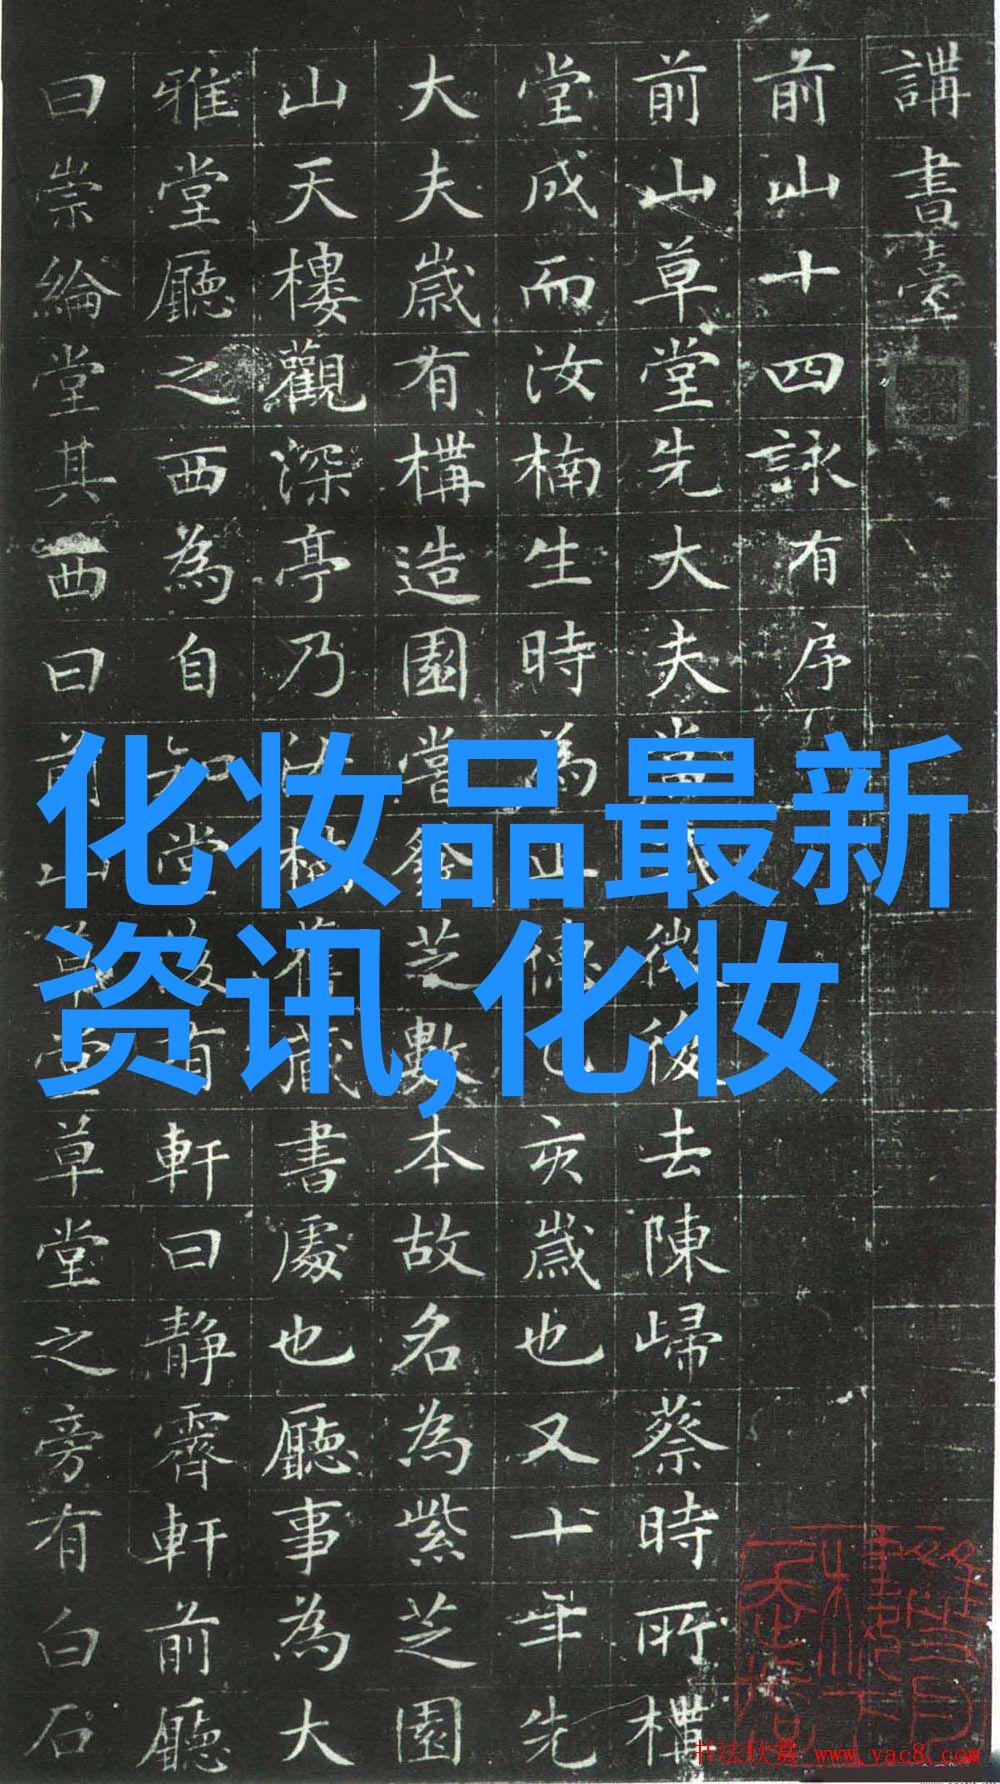 講書臺
前山十四詠有序
前山草堂先大夫後去陳歸蔡時所構
堂成而汝楠生時為正德乙亥歲也又十年先
大夫歲有構造園嘗發芝數本故名為紫芝園
山天樓觀深亭乃舊藏書處也廳事為大
雅堂廳之西為自知堂有軒曰靜霽軒前廳
曰崇綸堂其西曰前山草堂草堂之旁有白石
化妝品最新
资讯,化妝
书法欣赏 www.yac8.com